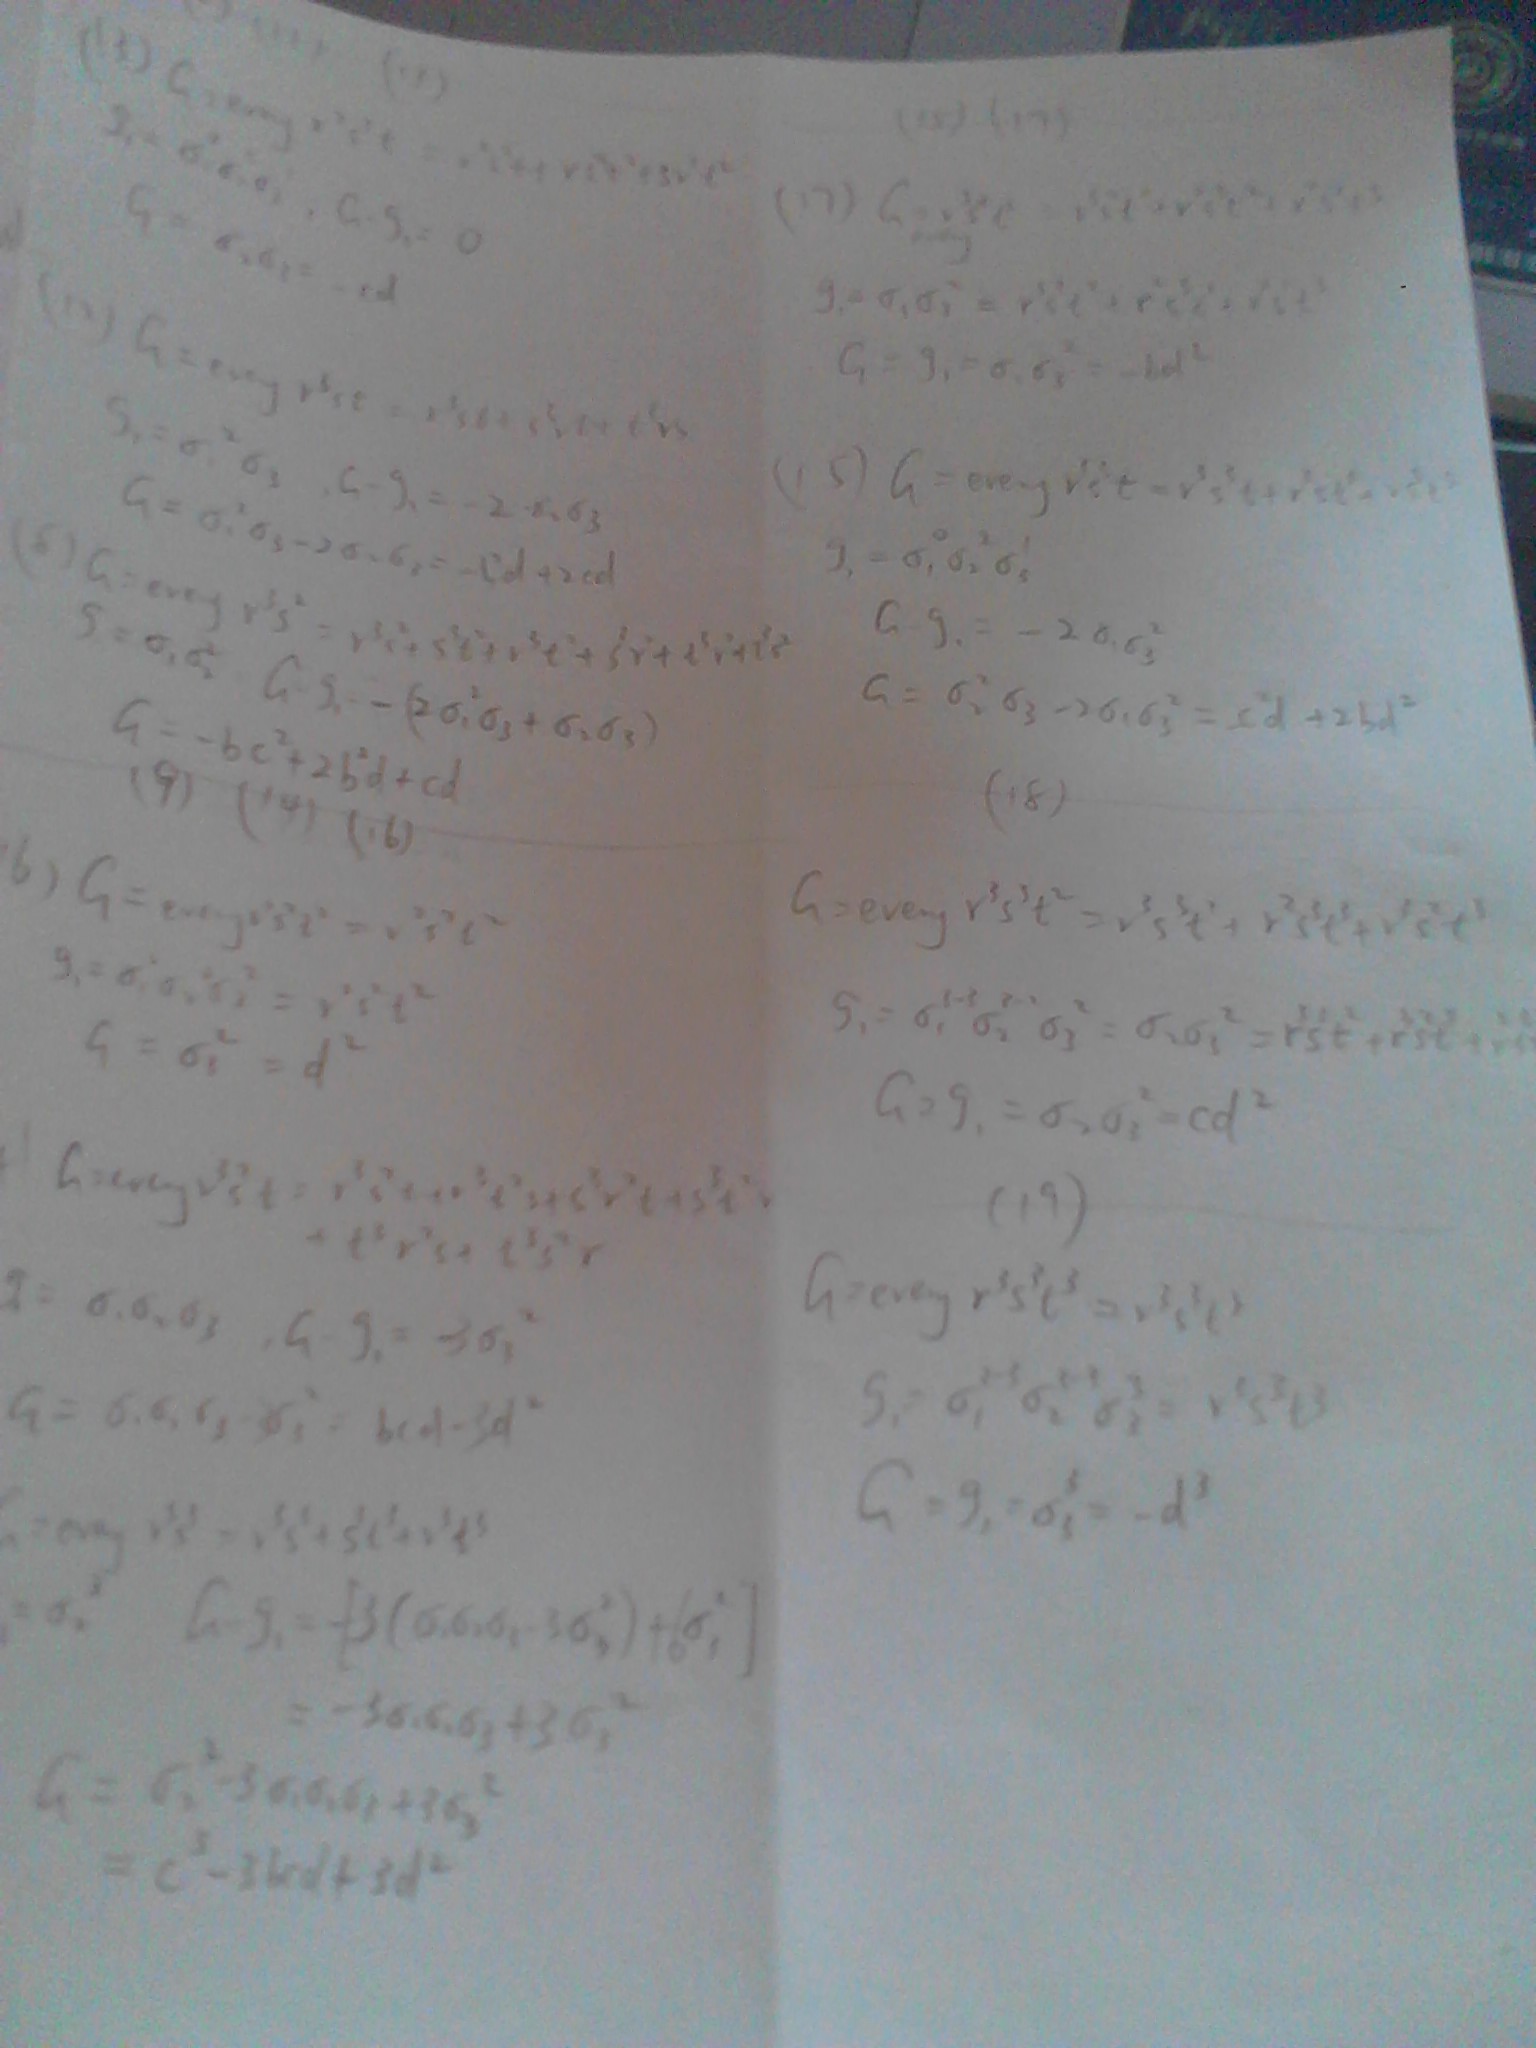 (13) (12)
(13) G = every r²s²t = r²s²t + rs²t² + sr²t²
g₁ = σ₁⁰σ₂¹σ₃¹ , G-g₁ = 0
G = σ₂σ₃ = -cd
(12) G = every r³st = r³st + s³rt + t³rs
g₁ = σ₁²σ₃ , G-g₁ = -2σ₂σ₃
G = σ₁²σ₃ - 2σ₂σ₃ = -b²d + 2cd
G = every r³s² = r³s² + s³t² + r³t² + s³r² + t³r² + t³s²
g₁ = σ₁σ₂² G-g₁ = -(2σ₁²σ₃ + σ₂σ₃)
G = -bc² + 2b²d + cd
(9) (14) (16)
G = every r²s²t² = r²s²t²
g₁ = σ₁⁰σ₂⁰σ₃² = r²s²t²
G = σ₃² = d²
G = every r³s²t = r³s²t + r³t²s + s³r²t + s³t²r
+ t³r²s + t³s²r
g₁ = σ₁σ₂σ₃ , G-g₁ = -3σ₃²
G = σ₁σ₂σ₃ - 3σ₃² = bcd - 3d²
G = every r³s³ = r³s³ + s³t³ + r³t³
= σ₂³ G-g₁ = -[3(σ₁σ₂σ₃ - 3σ₃²) + 6σ₃²]
= -3σ₁σ₂σ₃ + 3σ₃²
G = σ₂³ - 3σ₁σ₂σ₃ + 3σ₃²
= c³ - 3bcd + 3d²
(15) (17)
(17) G = every r³s²t² = r³s²t² + r²s³t² + r²s²t³
g₁ = σ₁σ₃² = r³s²t² + r²s³t² + r²s²t³
G = g₁ = σ₁σ₃² = -bd²
(15) G = every r³s³t = r³s³t + r³st³ + rs³t³
g₁ = σ₁⁰σ₂²σ₃¹
G-g₁ = -2σ₁σ₃²
G = σ₂²σ₃ - 2σ₁σ₃² = -c²d + 2bd²
(18)
G = every r³s³t² = r³s³t² + r²s³t³ + r³s²t³
g₁ = σ₁³⁻³σ₂³⁻²σ₃² = σ₂σ₃² = r³s³t² + r³s²t³ +
G = g₁ = σ₂σ₃² = cd²
(19)
G = every r³s³t³ = r³s³t³
g₁ = σ₁³⁻³σ₂³⁻³σ₃³ = r³s³t³
G = g₁ = σ₃³ = -d³